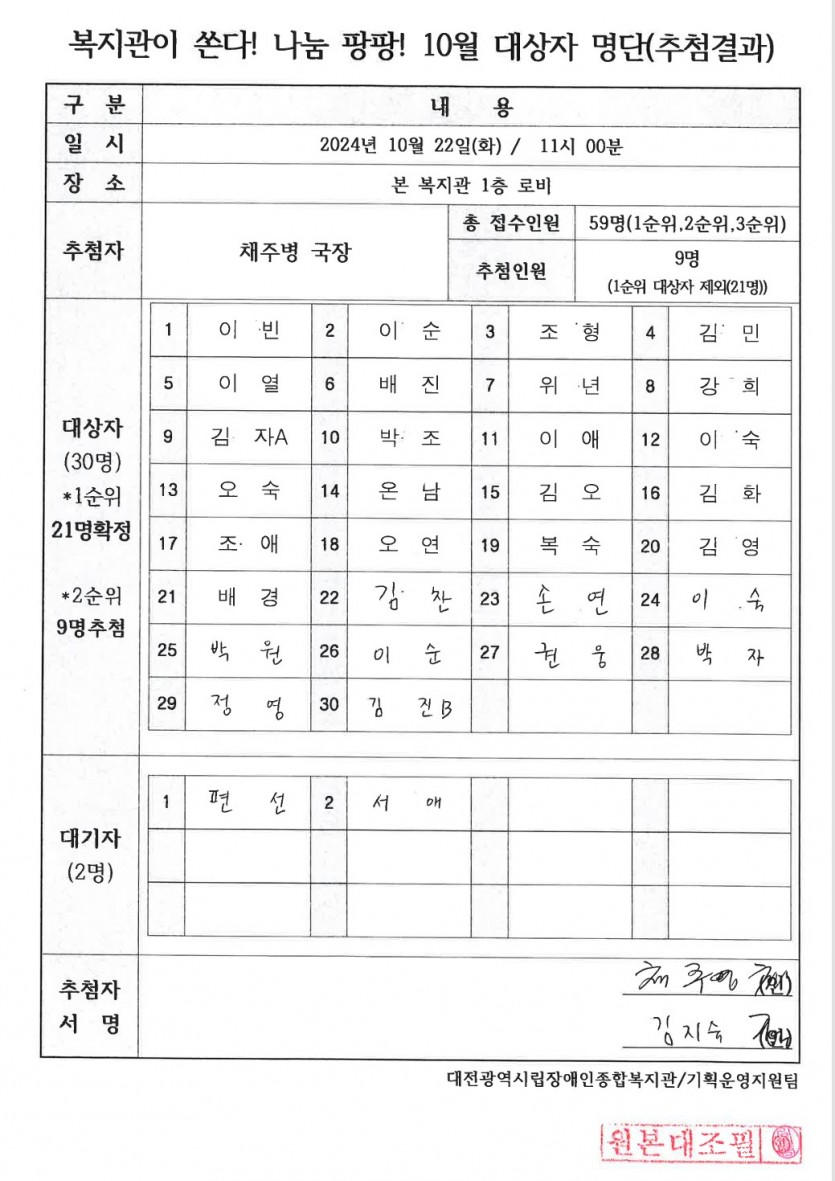 복지관이 쏜다! 나눔 팡팡! 10월 대상자 명단(추첨결과)
구 분 내 용
일 시 2024년 10월 22일(화) / 11시 00분
장 소 본 복지관 1층 로비
추첨자 채주병 국장 총 접수인원 59명(1순위,2순위,3순위)
추첨인원 9명
(1순위 대상자 제외(21명))
대상자
(30명)
*1순위
21명확정
*2순위
9명추첨
1 이 빈 2 이 순 3 조 형 4 김 민
5 이 열 6 배 진 7 위 년 8 강 희
9 김 자A 10 박 조 11 이 애 12 이 숙
13 오 숙 14 온 남 15 김 오 16 김 화
17 조 애 18 오 연 19 복 숙 20 김 영
21 배 경 22 김 찬 23 손 연 24 이 숙
25 박 원 26 이 순 27 권 웅 28 박 자
29 정 영 30 김 진B
대기자
(2명)
1 편 선 2 서 애
추첨자
서 명
채주병
김지숙
대전광역시립장애인종합복지관/기획운영지원팀
원본대조필